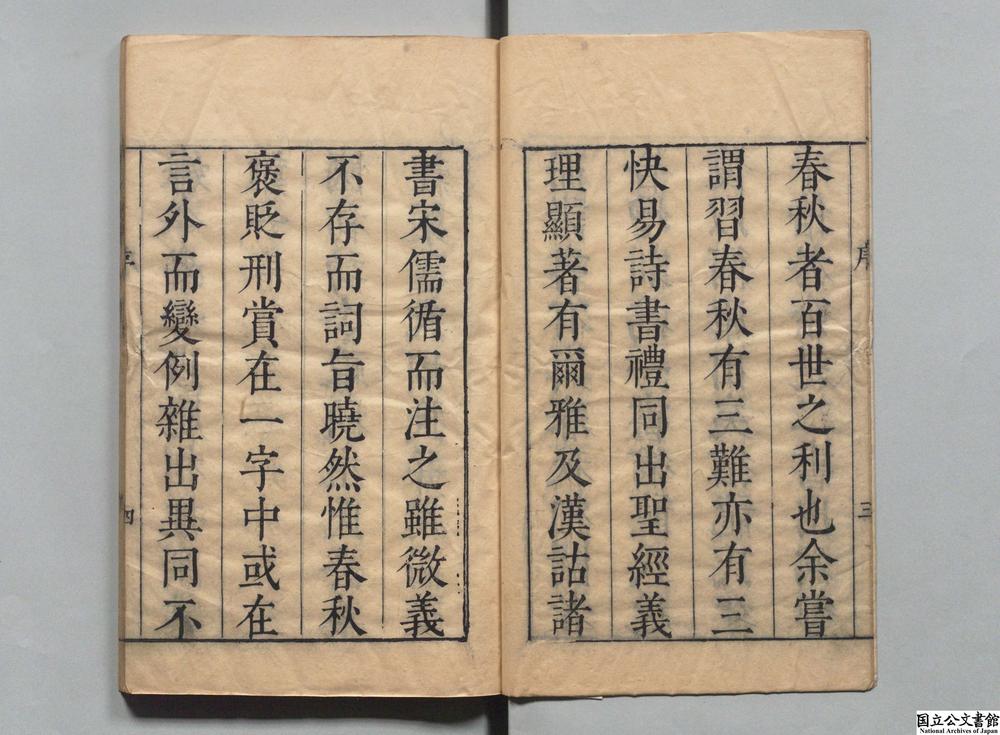 春秋者百世之利也余嘗
謂習春秋有三難亦有三
快易詩書禮同出聖經義
理顯著有爾雅及漢詁諸
書宋儒循而注之雖微義
不存而詞旨曉然惟春秋
褒貶刑賞在一字中或在
言外而變例雜出異同不
序
三
四
国立公文書館
National Archives of Japan